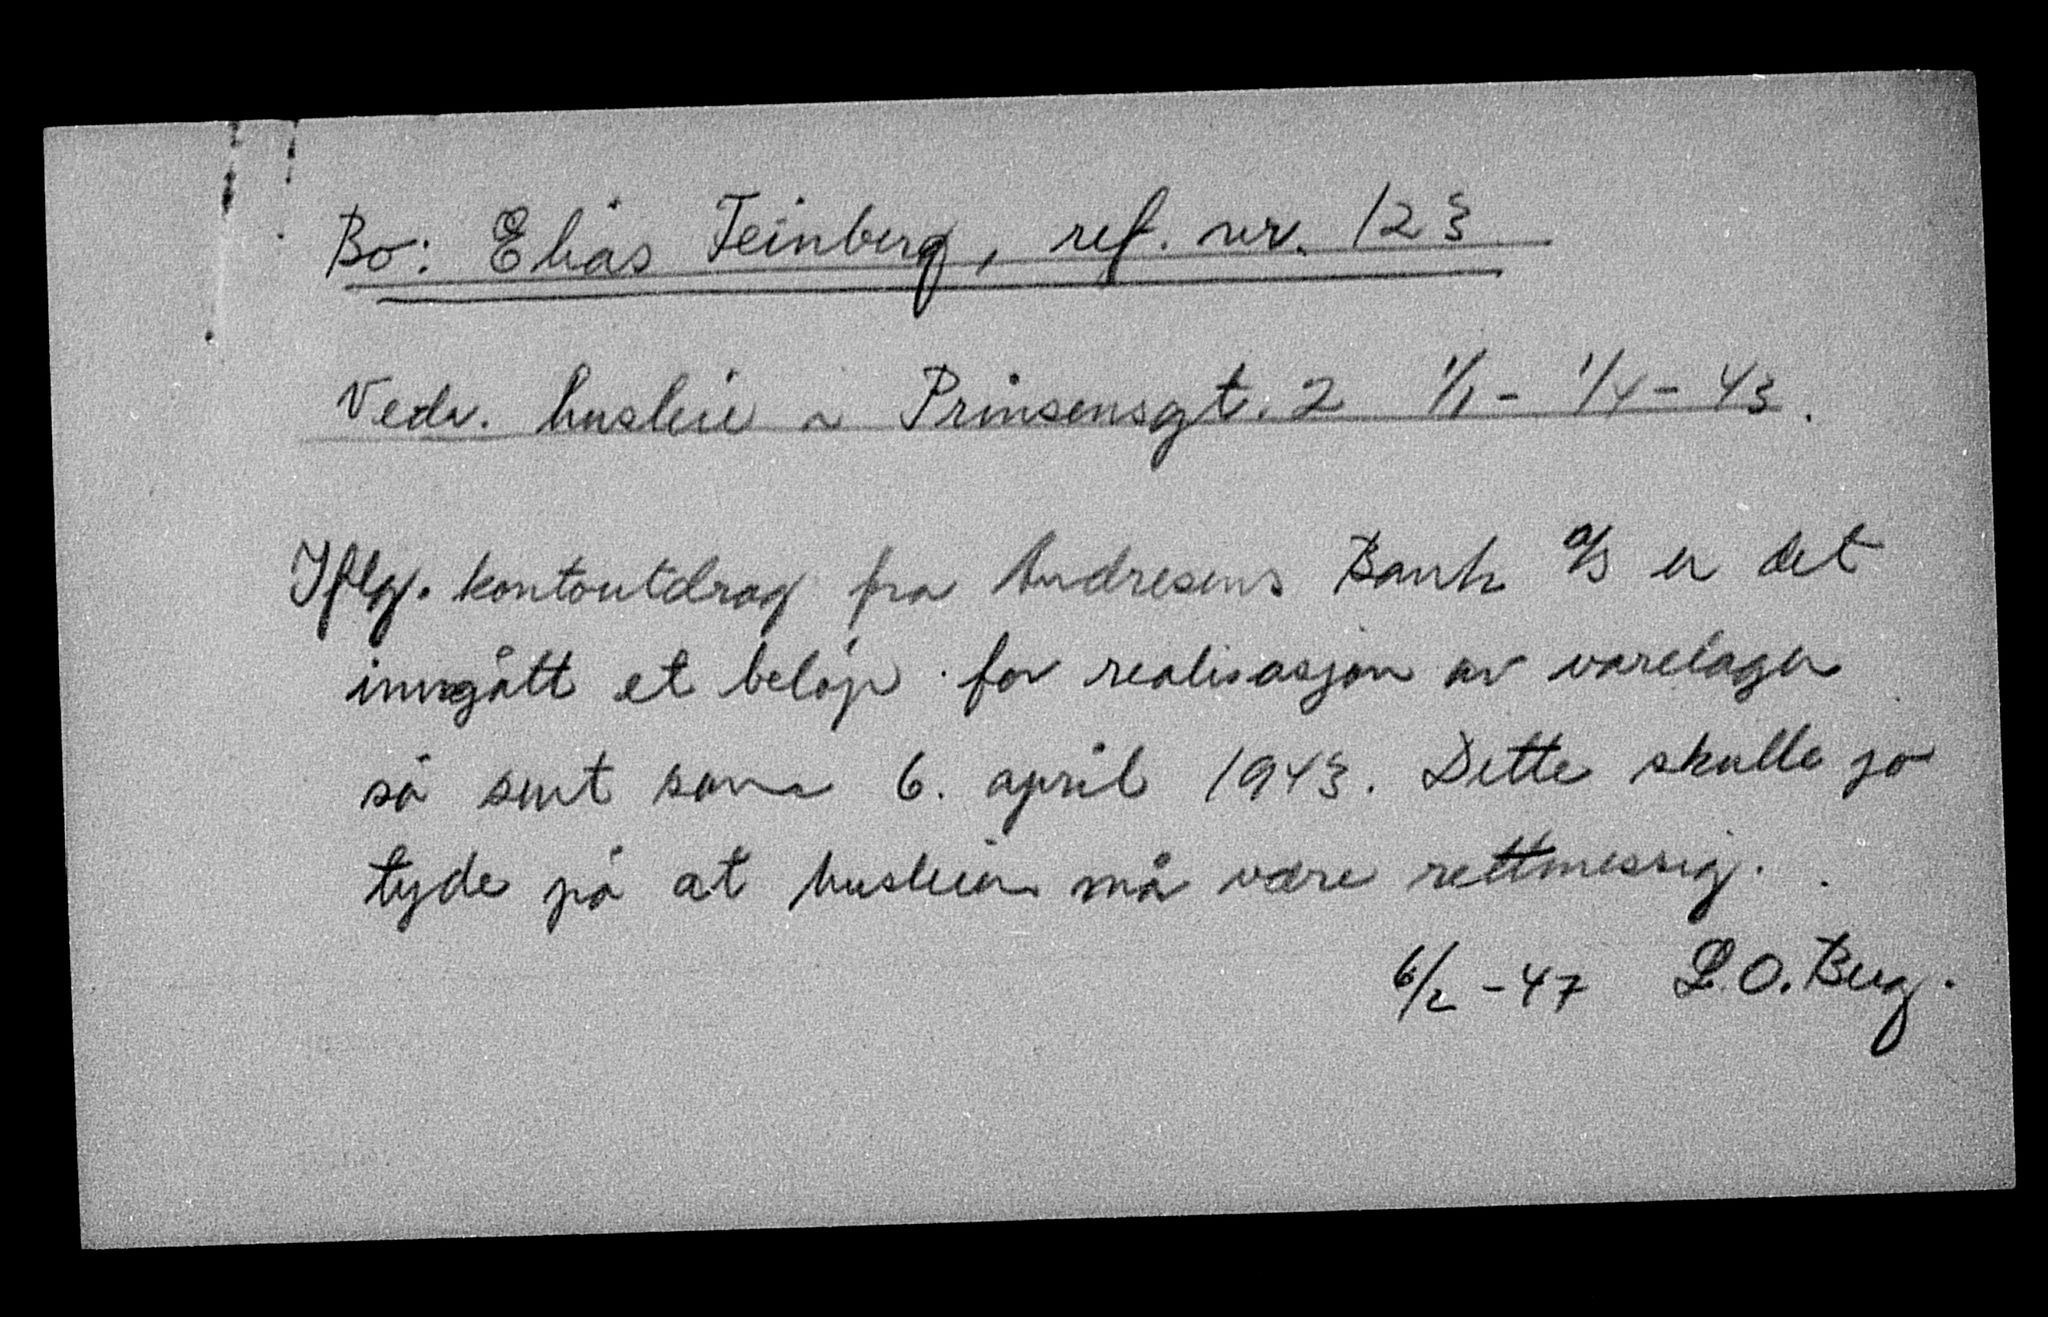 Bo: Elias Feinberg, ref. nr. 123
Vedr. husleie i Prinsensgt. 2 1/1 - 1/4 - 43.
Iflg. kontoutdrag fra Andresens Bank A/S er det
inngått et beløp for realisasjon av varelager
så sent som 6. april 1943. Dette skulle jo
tyde på at husleien må være rettmessig.
6/2 - 47 L.O. Berg.